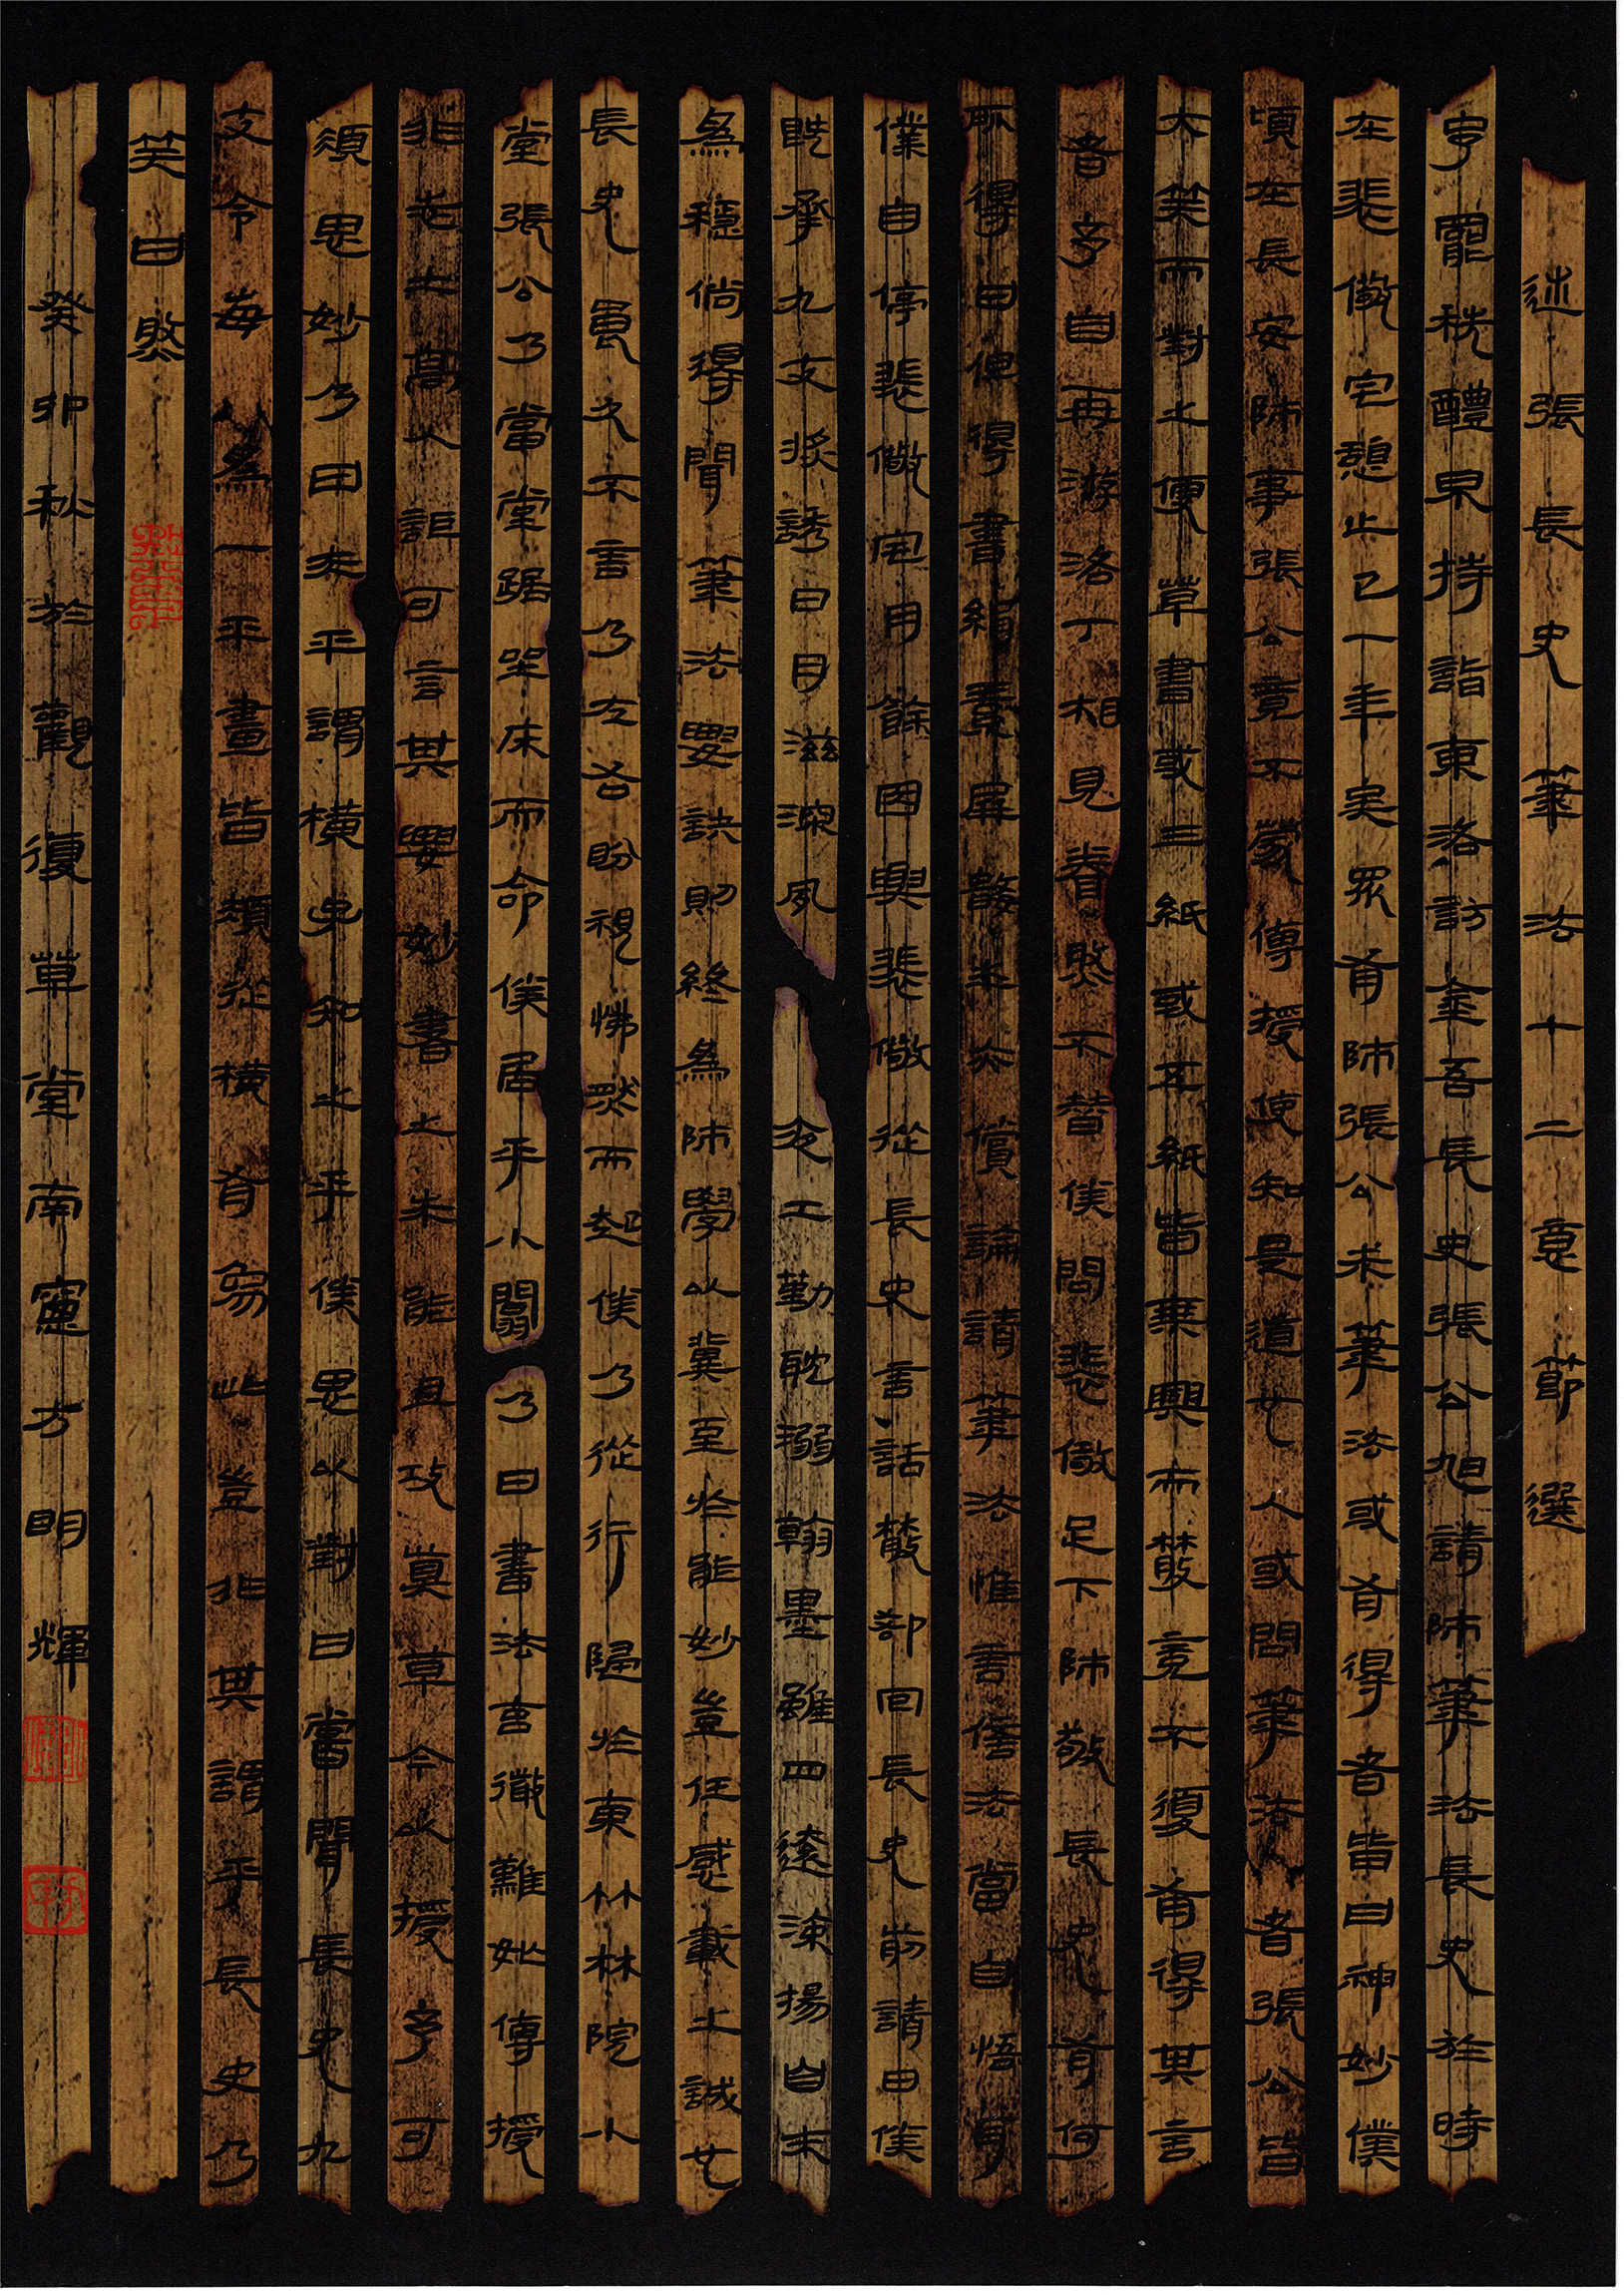 述張長史筆法十二意節選
予罷秩醴泉特詣東洛訪金吾長史張公旭請師筆法長史於時
在裴儆宅憩止已一年矣眾有師張公求筆法或有得者皆曰神妙僕
頃在長安師事張公竟不蒙傳授使知是道也人或問筆法者張公皆
大笑而對之便草書或三紙或五紙皆乘興而散竟不復有得其言
者予自再游洛下相見眷然不替僕問裴儆足下師敬長史有何
所得曰但得書絹素屏數本亦償論請筆法惟言倍法當自悟耳
僕自停裴儆宅月餘因與裴儆從長史言話散卻回長史前請曰僕
既承九丈獎誘日月滋深夙夜工勤耽溺翰墨雖四遠流揚自未
為穩倘得聞筆法要訣則終為師學以冀至於能妙豈任感戴之誠也
長史良久不言乃左右盼視怫然而起僕乃從行歸於東竹林院小
堂張公乃當堂踞坐床而命僕居乎小闒乃曰書法玄微難妙傳授
非志士高人詎可言其要妙書之求能且攻真草今以授予可
須思妙乃曰夫平謂橫子知之乎僕思以對曰嘗聞長史九
丈令每為一平畫皆須縱橫有象此豈非其謂乎長史乃
笑曰然
癸卯秋於觀復草堂南窗方明輝